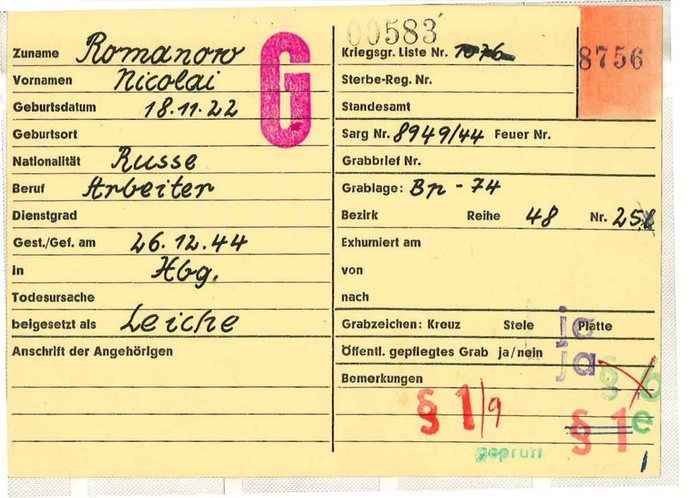 Zuname Romanow
Vornamen Nicolai
Geburtsdatum 18.11.22
Geburtsort
Nationalität Russe
Beruf Arbeiter
Dienstgrad
Gest./Gef. am 26.12.44
in Hbg.
Todesursache
beigesetzt als Leiche
Anschrift der Angehörigen
G
00583
Kriegsgr. Liste Nr. 1076
8756
Sterbe-Reg. Nr.
Standesamt
Sarg Nr. 8949/44 Feuer Nr.
Grabbrief Nr.
Grablage: Bp - 74
Bezirk Reihe 48 Nr. 25
Exhumiert am
von
nach
Grabzeichen: Kreuz Stele Platte ja
Öffentl. gepflegtes Grab ja/nein ja
Bemerkungen § 6
§ 1/9
§ 1 e
geprüft
1